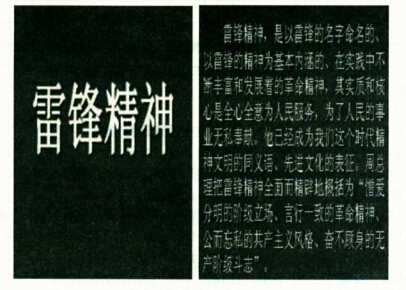 雷锋精神
雷锋精神，是以雷锋的名字命名的、
以雷锋的精神为基本内涵的、在实践中不
断丰富和发展着的革命精神，其实质和核
心是全心全意为人民服务，为了人民的事
业无私奉献。他已经成为我们这个时代精
神文明的同义语、先进文化的表征。周总
理把雷锋精神全面而精辟地概括为“憎爱
分明的阶级立场、言行一致的革命精神、
公而忘私的共产主义风格、奋不顾身的无
产阶级斗志”。